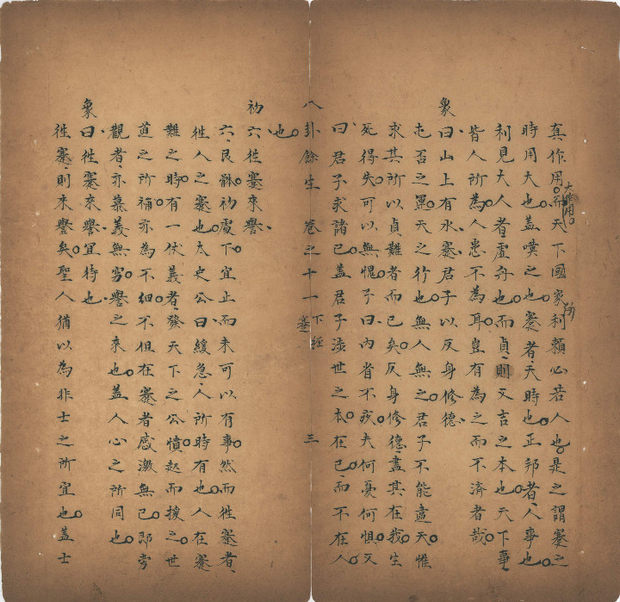 真作用而天下國家利賴必若人也是之謂蹇之
大作用
所
時用大也蓋嘆之也蹇者天時也正邦者人事也
利見大人者虛舟也而貞則又吉之本也天下事
皆人所為人患不為耳豈有為之而不濟者哉
象曰山上有水蹇君子以反身修德
屯否之天之行也無人無之君子不能盡天惟
求其所以貞難者而已矣反身修德盡其在我生
死得失可以無愧子曰內省不疚夫何憂何懼又
曰君子求諸己蓋君子涉世之本在己而不在人
八卦餘生 卷之十一 下經 蹇 三
也
初六徃蹇來譽
六艮體初處下宜止而未可以有事然而徃蹇者
徃人之蹇也太史公曰緩急人所時有也人在蹇
難之時有一伏義者發天下之公憤起而援之世
道之所補亦為不細不但在蹇者感激無已即旁
觀者亦慕義無窮譽之來也蓋人心之所同也
象曰徃蹇來譽宜待也
徃蹇則來譽矣聖人猶以為非士之所宜也蓋士